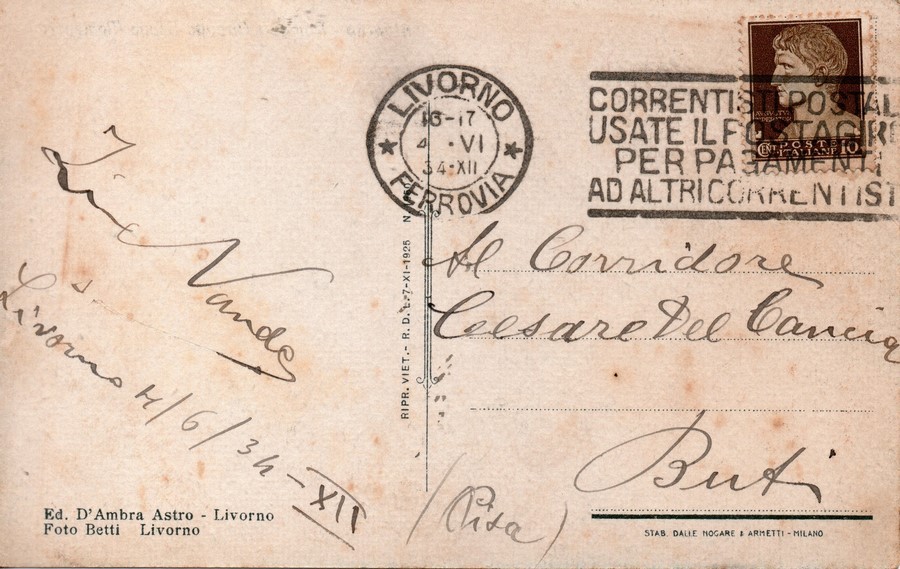 LIVORNO
16-17
4 . VI
34-XII
FERROVIA
CORRENTISTI POSTAL
USATE IL POSTAGIRO
PER PAGAMENTI
AD ALTRI CORRENTIST
CENT. POSTE ITALIANE 10
Vanda
Livorno 4/6/34-XII
Al Corridore
Cesare Del Cancia
Buti
(Pisa)
RIPR. VIET. - R. D. L. 7-XI-1925 N
Ed. D'Ambra Astro - Livorno
Foto Betti Livorno
STAB. DALLE NOGARE & ARMETTI - MILANO